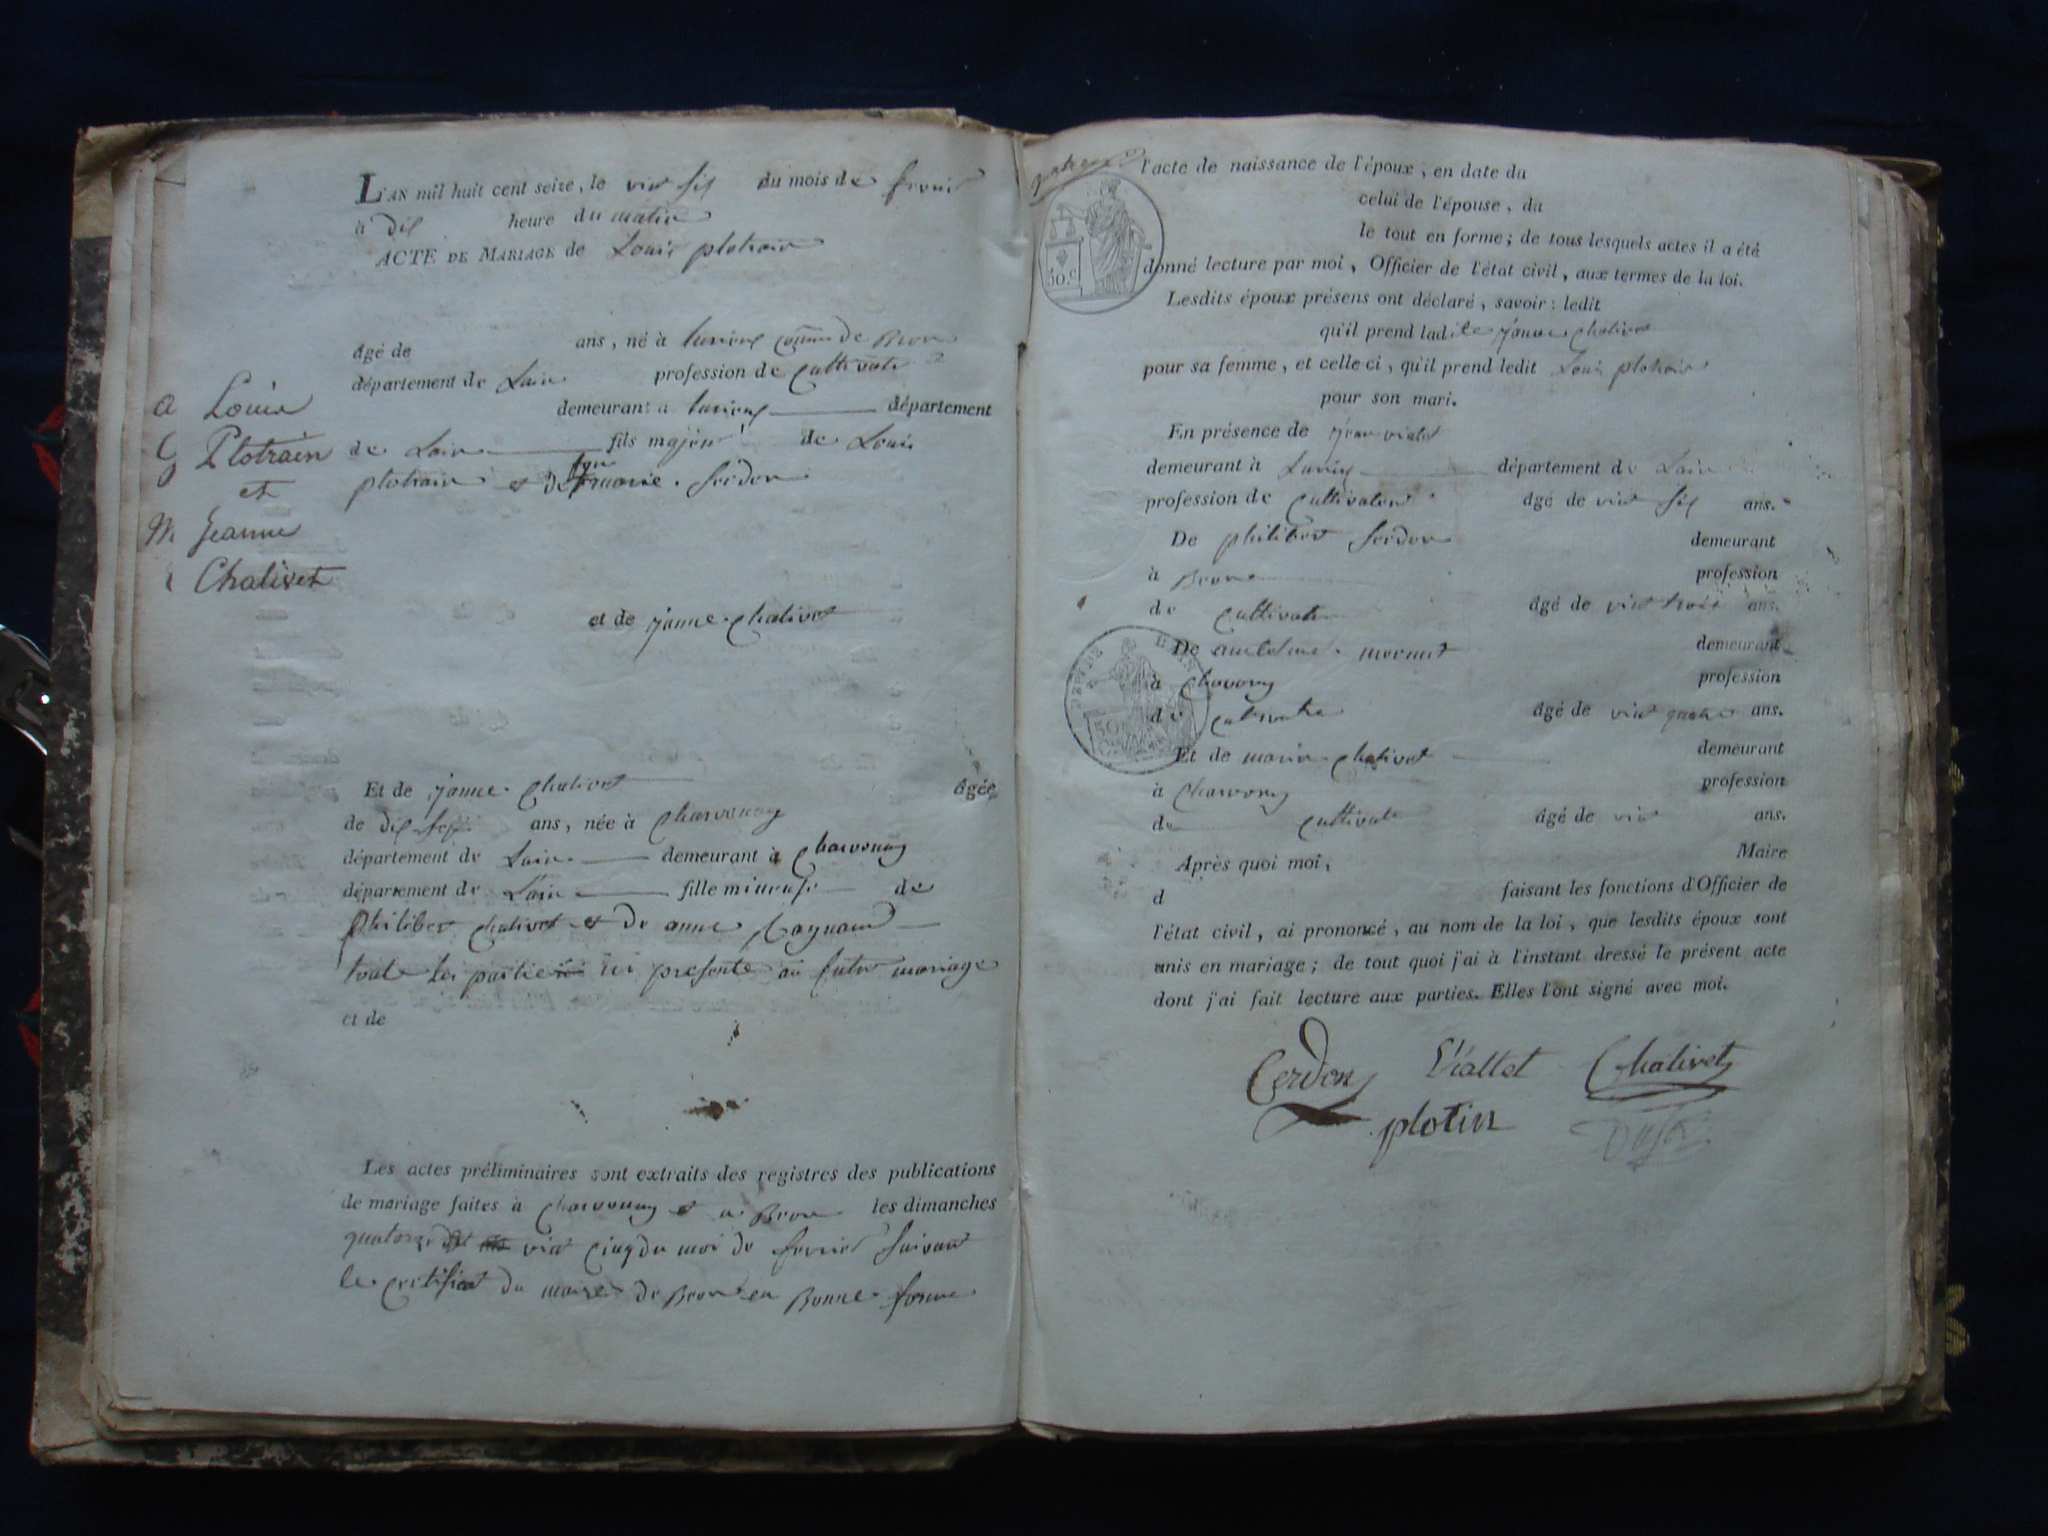 L'AN mil huit cent seize, le vint six du mois de fevrier
à dix heure du matin
ACTE DE MARIAGE de Louis plotrain
âgé de ans, né à Commune de Beon
département de Lain profession de Cultivate
demeurant à département
de Lain fils majeur de Louis
plotrain et de marie Serdon
Louis
Plotrain
et
Jeanne
Chalivet
et de janne Chalivet
Et de janne Chalivet âgée
de dix sept ans, née à Chavorney
département de Lain demeurant à Chavorney
département de Lain fille mineuse de
philibert Chalivet et de anne
toute partie presente au futur mariage
et de
Les actes préliminaires sont extraits des registres des publications
de mariage faites à Chavorney et a Beon les dimanches
quatorze vint Cinq du moi de fevrier Suivant
le Certificat du maire de Beon en Bonne forme
l'acte de naissance de l'époux, en date du
celui de l'épouse, du
le tout en forme; de tous lesquels actes il a été
donné lecture par moi, Officier de l'état civil, aux termes de la loi.
50.c
Lesdits époux présens ont déclaré, savoir: ledit
qu'il prend ladite janne Chalivet
pour sa femme, et celle ci, qu'il prend ledit Louis plotrain
pour son mari.
En présence de jean vialet
demeurant à département de Lain
profession de Cultivateur âgé de vint six ans.
De philibert Serdon demeurant
à Beon profession
de Cultivate âgé de vint trois ans.
De antelme demeurant
à Chavorney profession
de Cultivate âgé de vint quatre ans.
Et de marin Chalivet demeurant
à Chavorney profession
de Cultivate âgé de vint ans.
Après quoi moi, Maire
d faisant les fonctions d'Officier de
l'état civil, ai prononcé, au nom de la loi, que lesdits époux sont
unis en mariage; de tout quoi j'ai à l'instant dressé le présent acte
dont j'ai fait lecture aux parties. Elles l'ont signé avec moi.
Cerdon Viallet Chalivet
plotin